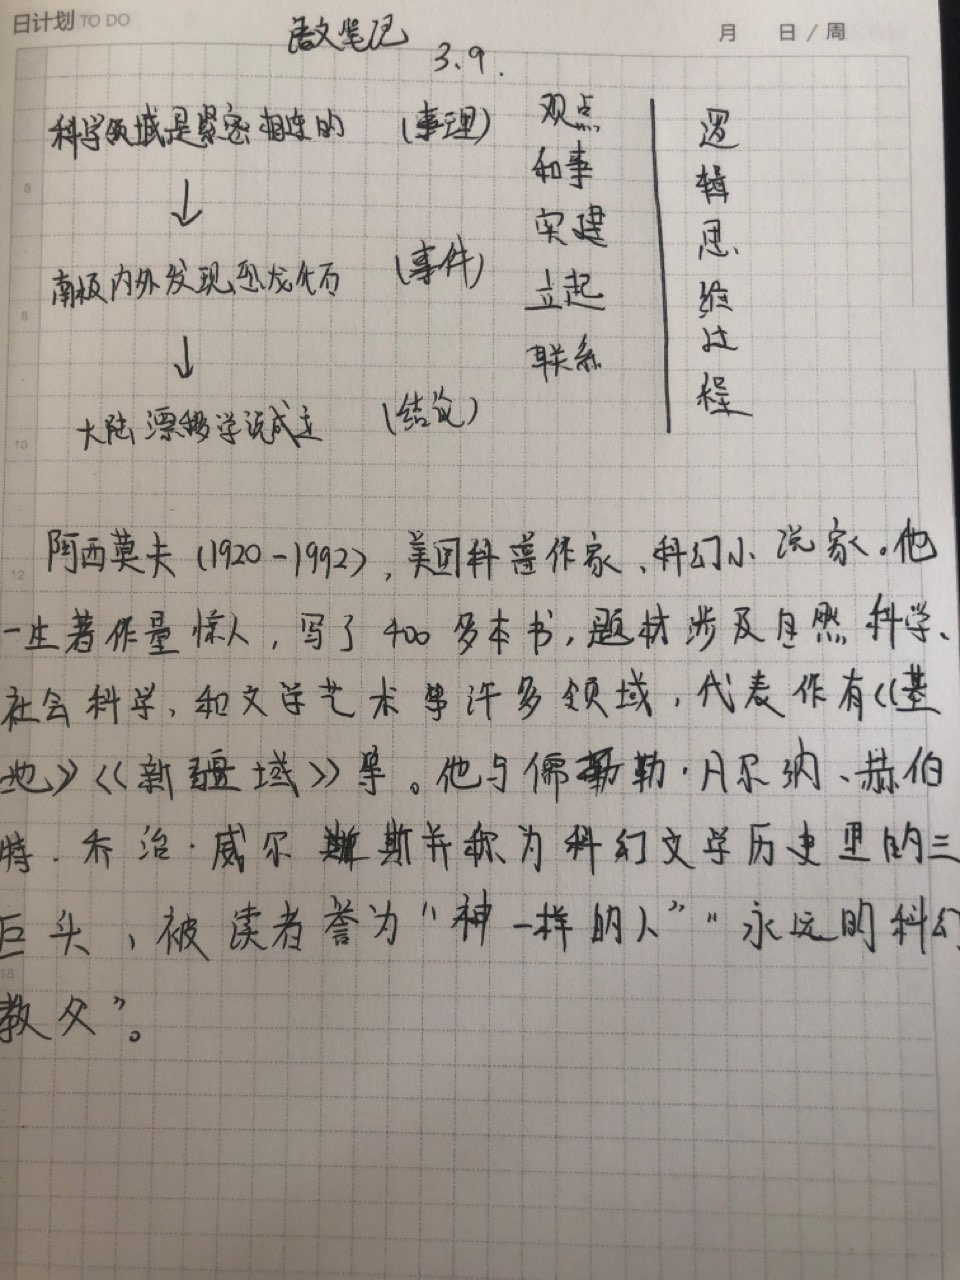 日计划 TO DO
月 日 / 周
语文笔记
3.9.
科学领域是紧密相连的 (事理)
↓
南极内外发现恐龙化石 (事件)
↓
大陆漂移学说成立 (结论)
观点
和事
实建
立起
联系
逻
辑
思
维
过
程
8
8
10
12
18
阿西莫夫(1920-1992),美国科普作家、科幻小说家。他
一生著作量惊人,写了400多本书,题材涉及自然科学、
社会科学、和文学艺术等许多领域,代表作有《基
地》《新疆域》等。他与儒勒·凡尔纳、赫伯
特·乔治·威尔斯并称为科幻文学历史里的三
巨头,被读者誉为“神一样的人”“永远的科幻
教父”。